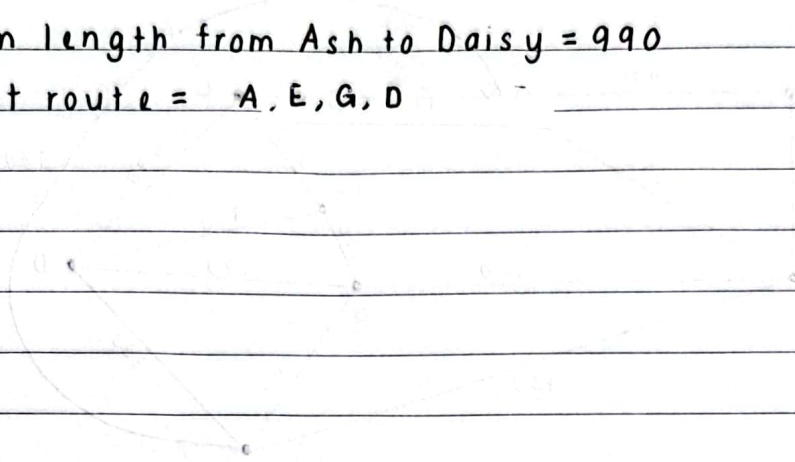 n length from Ash to Daisy = 990
t route = A, E, G, D